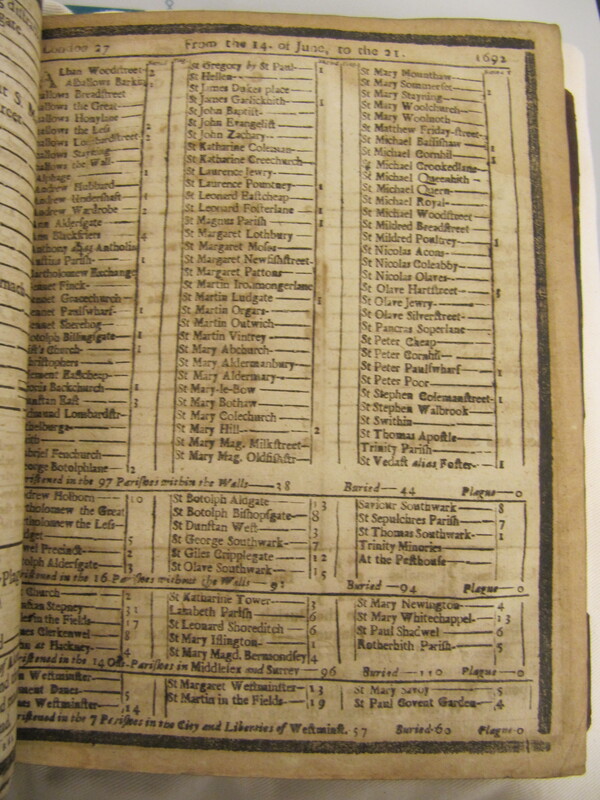 London 27 From the 14. of June, to the 21. 1692
Alban Woodstreet 2
Alhallows Barking
allows Breadstreet
allows the Great
allows Honylane
allows the Less 2
allows Lombardstreet 2
allows Staining
allows the Wall
Alphage 1
Andrew Hubbard
Andrew Undershaft 1
Andrew Wardrobe 2
Ann Aldersgate
Ann Blackfriers 4
Anthony alias Antholin
Austins Parish 1
artholomew Exchange
ennet Finck
ennet Gracechurch
ennet Paulswharf 1
ennet Sherehog
otolph Billingsgate 1
ist's Church 1
hristophers
lement Eastcheap
ionis Backchurch 1
unstan East 3
dmund Lombardstr
thelburga
aith
abriel Fenchurch
eorge Botolphlane 2
St Gregory by St Paul 1
St Hellen
St James Dukes place
St James Garlickhith 1
St John Baptist
St John Evangelist
St John Zachary
St Katharine Coleman
St Katharine Creechurch
St Laurence Jewry
St Laurence Pountney 1
St Leonard Eastcheap
St Leonard Fosterlane
St Magnus Parish 1
St Margaret Lothbury
St Margaret Moses
St Margaret Newfishstreet
St Margaret Pattons
St Martin Ironmongerlane
St Martin Ludgate 1
St Martin Orgars
St Martin Outwich
St Martin Vintrey
St Mary Abchurch
St Mary Aldermanbury
St Mary Aldermary
St Mary-le-Bow
St Mary Bothaw
St Mary Colechurch
St Mary Hill 2
St Mary Mag. Milkstreet
St Mary Mag. Oldfishstr
St Mary Mounthaw
St Mary Sommerset
St Mary Stayning
St Mary Woolchurch
St Mary Woolnoth
St Matthew Friday-street
St Michael Bassishaw 1
St Michael Cornhil 1
St Michael Crookedlane
St Michael Queenhith
St Michael Quern
St Michael Royal
St Michael Woodstreet
St Mildred Breadstreet
St Mildred Poultrey 1
St Nicolas Acons
St Nicolas Coleabby
St Nicolas Olaves
St Olave Hartstreet 3
St Olave Jewry
St Olave Silverstreet
St Pancras Soperlane
St Peter Cheap
St Peter Cornhil
St Peter Paulswharf 1
St Peter Poor
St Stephen Colemanstreet 1
St Stephen Walbrook
St Swithin
St Thomas Apostle
Trinity Parish
St Vedast alias Foster 1
ristened in the 97 Parishes within the Walls 38 Buried 44 Plague 0
ndrew Holborn 10
tholomew the Great
tholomew the Less
dget 5
wel Precinct 2
olph Aldersgate 3
St Botolph Aldgate 13
St Botolph Bishopsgate 8
St Dunstan West 3
St George Southwark 7
St Giles Cripplegate 12
St Olave Southwark 15
Saviour Southwark 8
St Sepulchres Parish 7
St Thomas Southwark 1
Trinity Minories
At the Pesthouse
ristened in the 16 Parishes without the Walls 92 Buried 94 Plague 0
Church 2
nstan Stepney 31
les in the Fields 17
mes Clerkenwel 8
hn at Hackney 4
St Katharine Tower 3
Lambeth Parish 6
St Leonard Shoreditch 6
St Mary Islington 1
St Mary Magd. Bermondsey 4
St Mary Newington 4
St Mary Whitechappel 13
St Paul Shadwel 6
Rotherhith Parish 5
ristened in the 14 Out-Parishes in Middlesex and Surrey 96 Buried 110 Plague 0
n Westminster
ement Danes 5
mes Westminster 14
St Margaret Westminster 13
St Martin in the Fields 19
St Mary Savoy 5
St Paul Covent Garden 4
ristened in the 7 Parishes in the City and Liberties of Westminst. 57 Buried 60 Plague 0